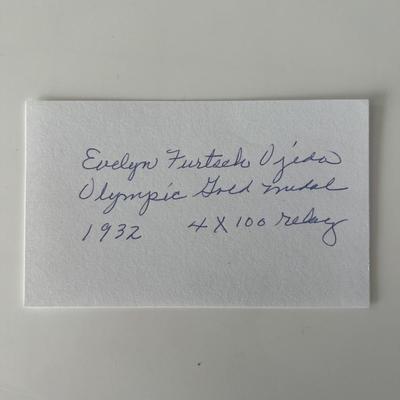 Evelyn Furtsch Ojeda
Olympic Gold medal
1932 4 X 100 relay